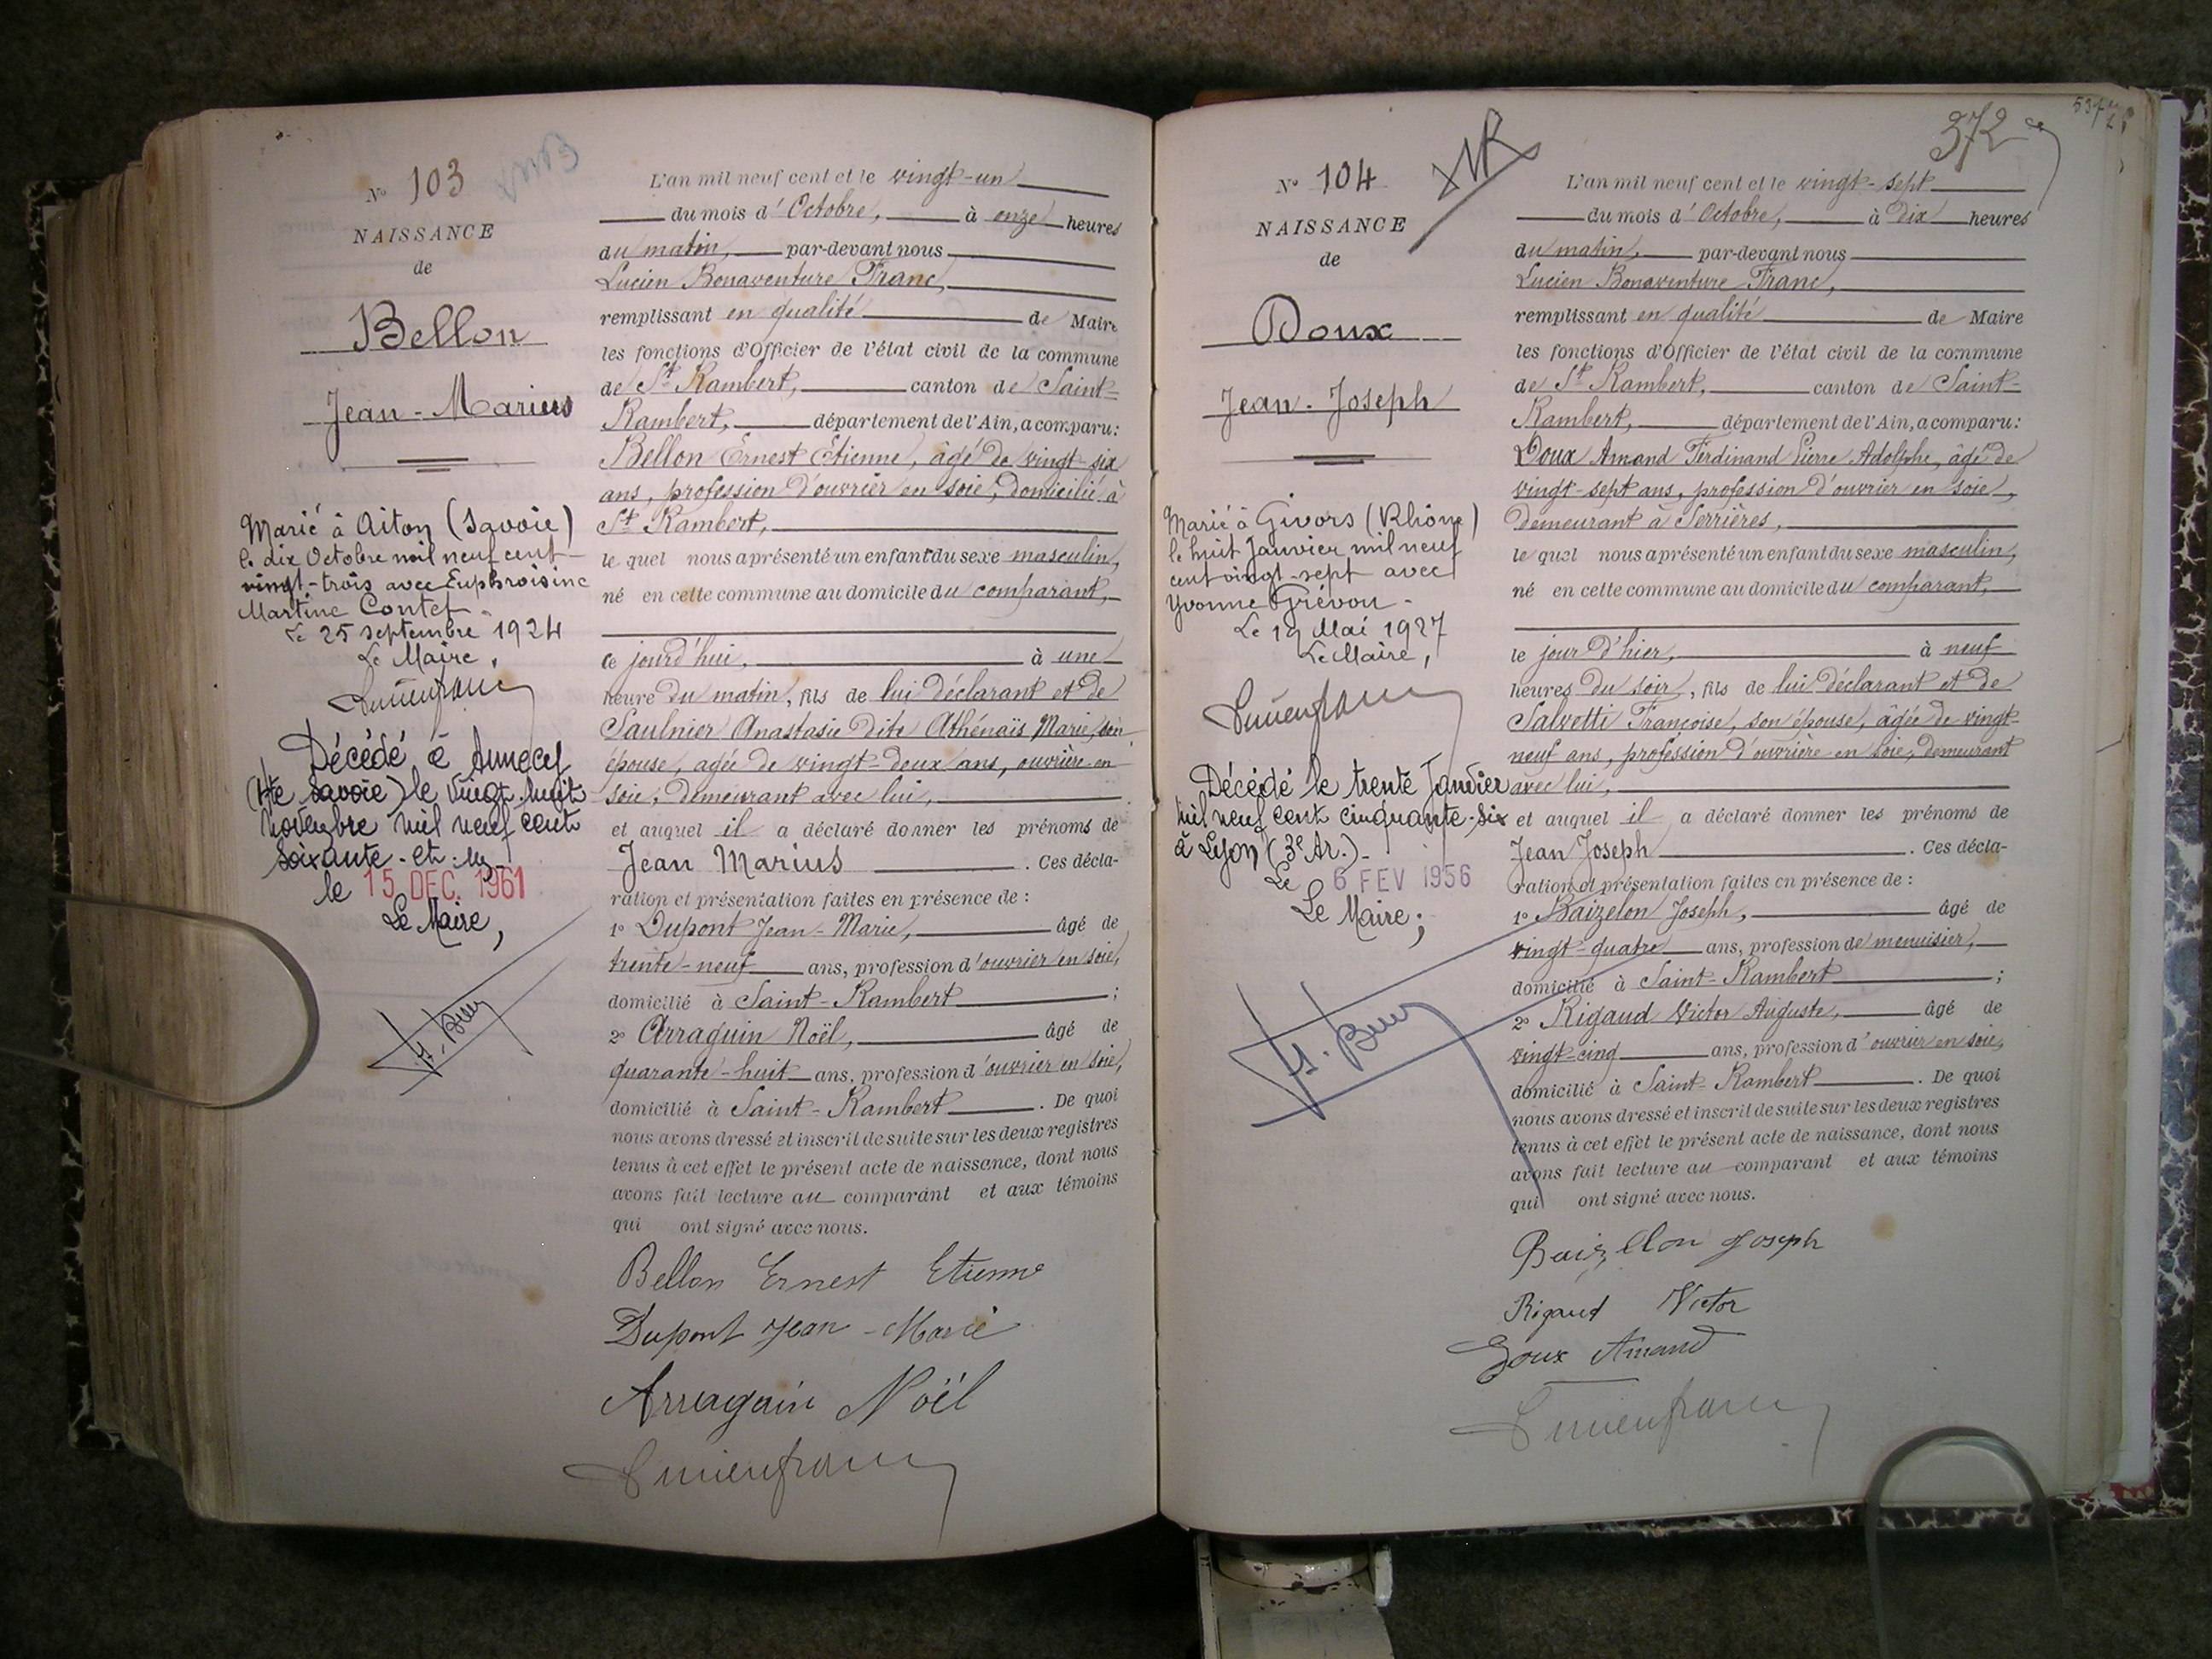 N° 103
NAISSANCE
de
Bellon
Jean-Marius
Marié à Aiton (Savoie)
le dix Octobre mil neuf cent
vingt-trois avec Euphroisine
Martine Contet
Le 25 septembre 1924
Le Maire,
Décédé à Annecy
(Hte Savoie) le vingt-huit
Novembre mil neuf cent
soixante-et-un
le 15 DEC. 1961
Le Maire,
L'an mil neuf cent et le vingt-un
du mois d'Octobre, à onze heures
du matin, par-devant nous
Lucien Bonaventure Franc,
remplissant en qualité de Maire
les fonctions d'Officier de l'état civil de la commune
de St Rambert, canton de Saint-
Rambert, département de l'Ain, a comparu:
Bellon Ernest Etienne, âgé de vingt-six
ans, profession d'ouvrier en soie, domicilié à
St Rambert,
le quel nous a présenté un enfant du sexe masculin,
né en cette commune au domicile du comparant,
ce jourd'hui, à une
heure du matin, fils de lui déclarant et de
Saulnier Anastasie dite Athénaïs Marie, son
épouse, agée de vingt-deux ans, ouvrière en
soie, demeurant avec lui,
et auquel il a déclaré donner les prénoms de
Jean Marius. Ces décla-
ration et présentation faites en présence de :
1° Dupont Jean-Marie, âgé de
trente-neuf ans, profession d'ouvrier en soie,
domicilié à Saint-Rambert ;
2° Arraguin Noël, âgé de
quarante-huit ans, profession d'ouvrier en soie,
domicilié à Saint-Rambert. De quoi
nous avons dressé et inscrit de suite sur les deux registres
tenus à cet effet le présent acte de naissance, dont nous
avons fait lecture au comparant et aux témoins
qui ont signé avec nous.
Bellon Ernest Etienne
Dupont Jean-Marie
Arragain Noël
Lucienfranc
372
N° 104
NAISSANCE
de
Doux
Jean-Joseph
Marié à Givors (Rhône)
le huit Janvier mil neuf
cent vingt-sept avec
Yvonne Frévon-
Le 19 Mai 1927
Le Maire,
Décédé le trente Janvier
mil neuf cent cinquante-six
à Lyon (3e Ar.)-
Le 6 FEV 1956
Le Maire;
L'an mil neuf cent et le vingt-sept
du mois d'Octobre, à dix heures
du matin, par-devant nous
Lucien Bonaventure Franc,
remplissant en qualité de Maire
les fonctions d'Officier de l'état civil de la commune
de St Rambert, canton de Saint-
Rambert, département de l'Ain, a comparu:
Doux Amand Ferdinand Pierre Adolphe, âgé de
vingt-sept ans, profession d'ouvrier en soie,
demeurant à Serrières,
le quel nous a présenté un enfant du sexe masculin,
né en cette commune au domicile du comparant,
le jour d'hier, à neuf
heures du soir, fils de lui déclarant et de
Salvetti Françoise, son épouse, âgée de vingt-
neuf ans, profession d'ouvrière en soie, demeurant
avec lui,
et auquel il a déclaré donner les prénoms de
Jean Joseph. Ces décla-
ration et présentation faites en présence de :
1° Baizelon Joseph, âgé de
vingt-quatre ans, profession de menuisier,
domicilié à Saint-Rambert ;
2° Rigaud Victor Auguste, âgé de
vingt-cinq ans, profession d'ouvrier en soie,
domicilié à Saint-Rambert. De quoi
nous avons dressé et inscrit de suite sur les deux registres
tenus à cet effet le présent acte de naissance, dont nous
avons fait lecture au comparant et aux témoins
qui ont signé avec nous.
Baizellon Joseph
Rigaud Victor
Doux Amand
Lucienfranc